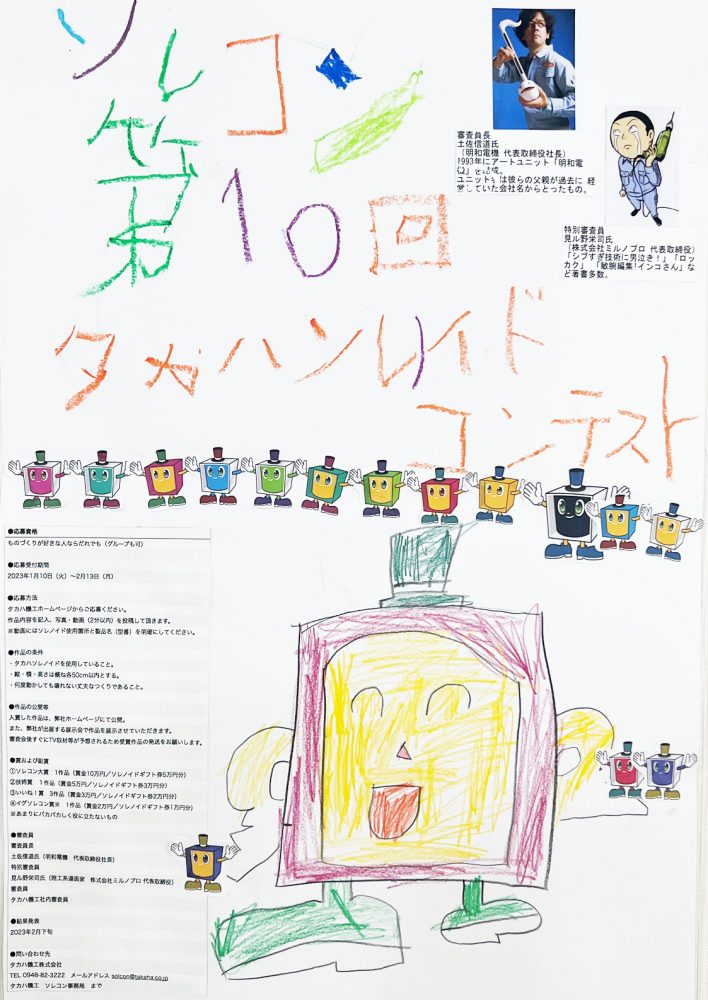 ソレコン
第10回
タカハソレノイド
コンテスト
審査員長
土佐信道氏
(明和電機 代表取締役社長)
1993年にアートユニット「明和電
機」を結成。
ユニット名は彼らの父親が過去に 経
営していた会社名からとったもの。
特別審査員
見ル野栄司氏
(株式会社ミルノプロ 代表取締役)
「シブすぎ技術に男泣き!」「ロッ
カク」 「敏腕編集!インコさん」な
ど著書多数。
●応募資格
ものづくりが好きな人ならだれでも(グループも可)
●応募受付期間
2023年1月10日(火)〜2月13日(月)
●応募方法
タカハ機工ホームページからご応募ください。
作品内容を記入、写真・動画(2分以内)を投稿して頂きます。
※動画にはソレノイド使用箇所と製品名(型番)を明確にしてください。
●作品の条件
・タカハソレノイドを使用していること。
・縦・横・高さは概ね各50cm以内とする。
・何度動かしても壊れない丈夫なつくりであること。
●作品の公開等
入賞した作品は、弊社ホームページにて公開。
また、弊社が出展する展示会で作品を展示させていただきます。
審査会後すぐにTV取材等が予想されるため受賞作品の発送をお願いします。
●賞および副賞
①ソレコン大賞 1作品(賞金10万円/ソレノイドギフト券5万円分)
②技術賞 1作品(賞金5万円/ソレノイドギフト券3万円分)
③いいね!賞 3作品(賞金3万円/ソレノイドギフト券2万円分)
④イグソレコン賞※ 1作品(賞金2万円/ソレノイドギフト券1万円分)
※あまりにバカバカしく役に立たないもの
●審査員
審査員長
土佐信道氏(明和電機 代表取締役社長)
特別審査員
見ル野栄司氏(理工系漫画家 株式会社ミルノプロ 代表取締役)
審査員
タカハ機工社内審査員
●結果発表
2023年2月下旬
●問い合わせ先
タカハ機工株式会社
TEL 0948-82-3222 メールアドレス solcon@takaha.co.jp
タカハ機工 ソレコン事務局 まで